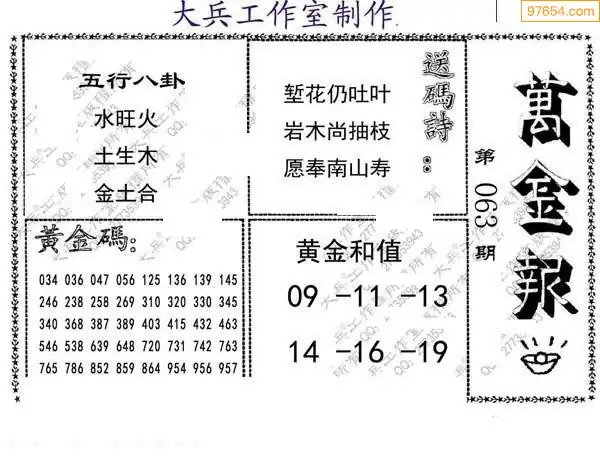 大兵工作室制作
97654.com
五行八卦
水旺火
土生木
金土合
送碼詩:
堑花仍吐叶
岩木尚抽枝
愿奉南山寿
萬金報
第063期
黃金碼:
034 036 047 056 125 136 139 145
246 238 258 269 310 320 330 345
340 368 387 389 403 415 432 463
546 538 639 648 720 731 742 763
765 786 852 859 864 954 956 957
黄金和值
09 -11 -13
14 -16 -19